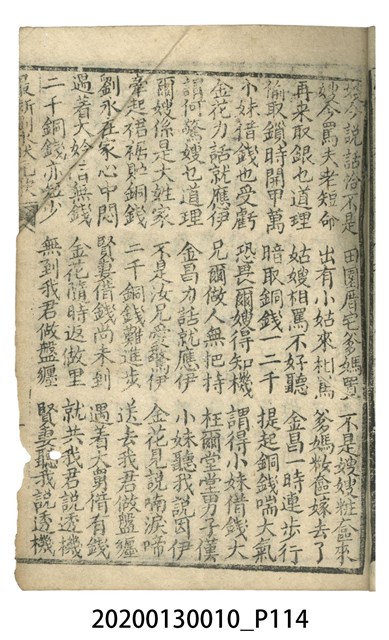 說話洽不是 田園厝宅爹媽置 不是嫂嫂粧奩來
今罵夫老短命 出有小姑來相罵 爹媽粧奩嫁去了
再來取銀也道理 姑嫂相罵不好聽 金昌一時連步行
偷取鎖時開甲萬 暗取銅錢一二千 提起銅錢喘大氣
小妹借錢也受虧 恐畏爾嫂得知機 謂得小妹借錢大
金花力話就應伊 兄爾做人無把持 枉爾堂堂男子漢
謂何驚嫂也道理 金昌力話就應伊 小妹聽我說因伊
爾嫂係是大姓家 不是汝兄愛驚伊 金花見說喃淚啼
牽起裙裾貯銅錢 二千銅錢難進步 送去我君做盤纏
劉永在家心中悶 賢妻借錢尚未到 遇着大舅借有錢
過着大妗信無錢 金花隨時返故里 就共我君說透機
二千銅錢亦恰少 無到我君做盤纏 賢妻聽我說透機
最新刊
20200130010_P114